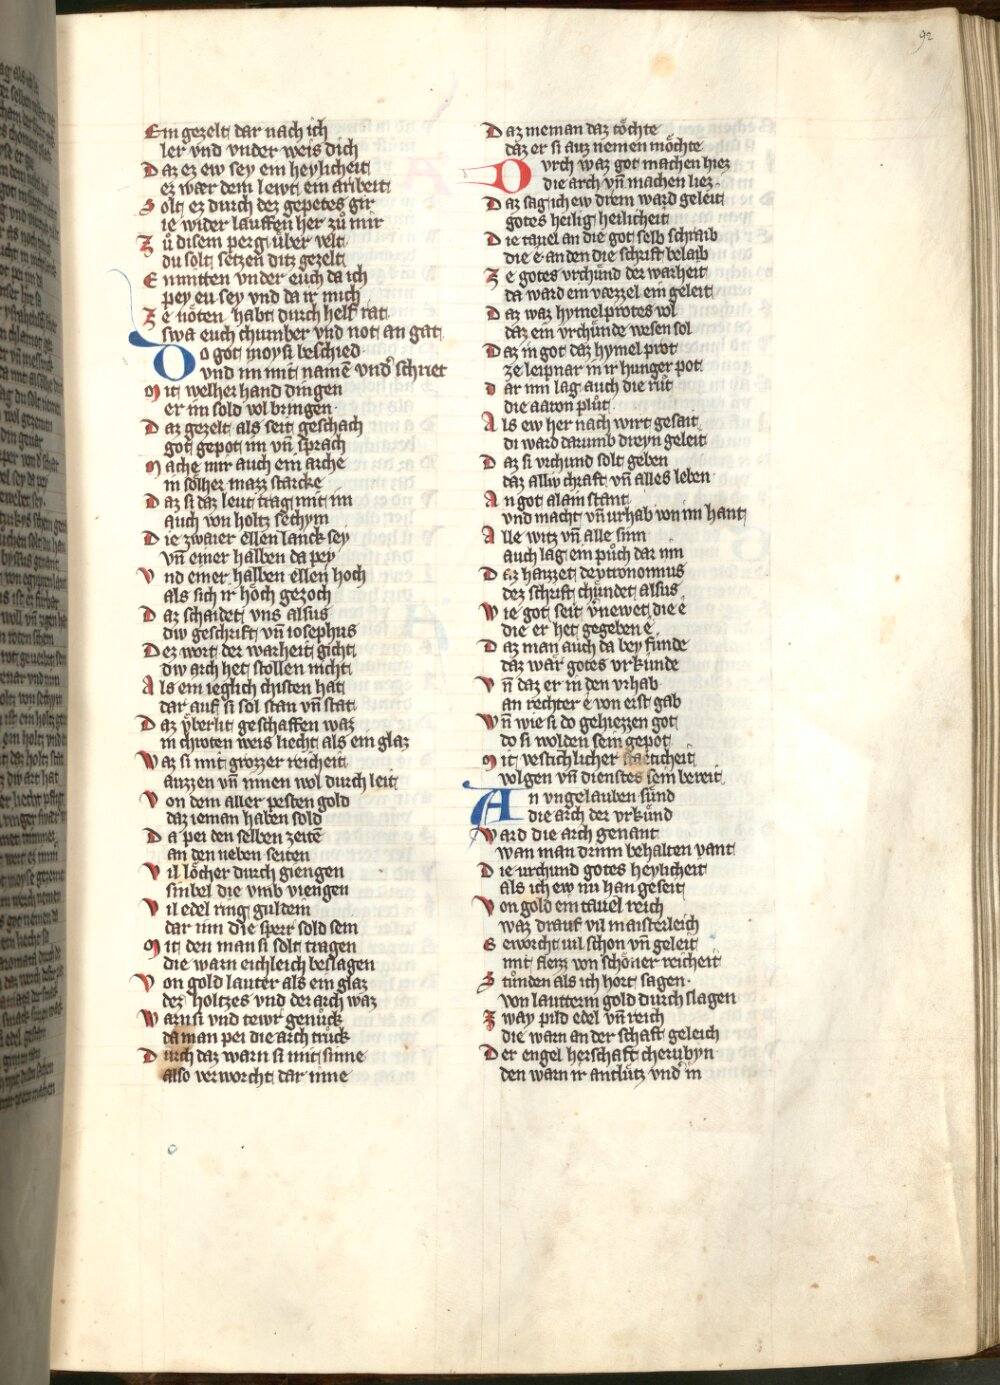 92
Ein gezelt dar nach ich
ler vnd vnder weis dich
Daz ez ew sey ein heylicheit
ez wær dem lewt ein aribeit
Solt ez durch dez gepetes gir
ie wider lauffen her zů mir
Zů disem perg über velt
du solt setzen ditz gezelt
Enmitten vnder euch da ich
pey eu sey vnd da ir mich
Ze nöten habt durch helf rat
swa euch chumber vnd not an gat
Do got moysi beschied
vnd im mit namē vnd schriet
Mit welher hand dingen
er im sold vol bringen
Daz gezelt als seit geschach
got gepot im vn̄ sprach
Mache mir auch ein arche
in sölher mazz starcke
Daz si daz leut trag mit im
auch von holtz sechym
Die zwaier ellen lanck sey
vn̄ einer halben da pey
Vnd einer halben ellen hoch
als sich ir höch gezoch
Daz schaidet vns alsus
diw geschrift vn̄ iosephus
Dez wort der warheit gicht
diw arch het stollen nicht
Als ein ieglich chisten hat
dar auf si sol stan vn̄ stat
Daz vberlit geschaffen waz
in chroten weis liecht als ein glaz
Waz si mit grozzer reicheit
auzzen vn̄ innen wol durch leit
Von dem aller pesten gold
daz ieman haben sold
Da pei den selben zeitē
an den neben seiten
Vil löcher durch giengen
sinbel die vmb viengen
Vil edel ring guldein
dar inn die sperr sold sein
Mit den man si solt tragen
die warn eichleich beslagen
Von gold lauter als ein glaz
dez holtzes vnd der arch waz
Warn si vnd tewr genůck
da man pei die arch trůck
Durch daz warn si mit sinne
also verworcht dar inne
Daz nieman daz töchte
daz er si auz nemen möchte
Durch waz got machen hiez
die arch vn̄ machen liez
Daz sag ich ew dreın ward geleit
gotes heilig heilicheit
Die tauel an die got selb schraib
die e an den die schrift belaib
Ze gotes vrchünd der warheit
da ward ein væzzel ein geleit
Daz waz hymelprotes vol
daz ein vrchünde wesen sol
Daz in got daz hymel prot
ze leipnar in ir hunger pot
Dar inn lag auch die růt
die aaron plůt
Als ew her nach wirt gesait
di ward darumb dreyn geleit
Daz si vrchund solt geben
daz alliv chraft vn̄ alles leben
An got alain stant
vnd macht vn̄ urhab von im hant
Alle witz vn̄ alle sinn
auch lag ein půch dar inn
Daz haizzet deutronomius
dez schrift chündet alsus
Wie got seit v̄newet die e
die er het gegeben e
Daz man auch da bey funde
daz wär gotes vrkünde
Vn̄ daz er in den vrhab
an rechter e von erst gab
Vn̄ wie si do gehiezzen got
do si wolden sein gepot
Mit vestichlicher stæticheit
volgen vn̄ dienstes sein bereit
An vngelauben sünd
die arch der vrkünd
Ward die arch genant
wan man drinn behalten vant
Die urchund gotes heylicheit
als ich ew nu han geseit
Von gold ein tauel reich
waz drauf vil maisterleich
Geworcht uil schon vn̄ geleit
mit fleizz von schöner reicheit
Stůnden als ich hort sagen
von lauterm gold durch slagen
Zway pild edel vn̄ reich
die warn an der schaft geleich
Der engel herschaft cherubyn
den warn ir antlütz vnd in